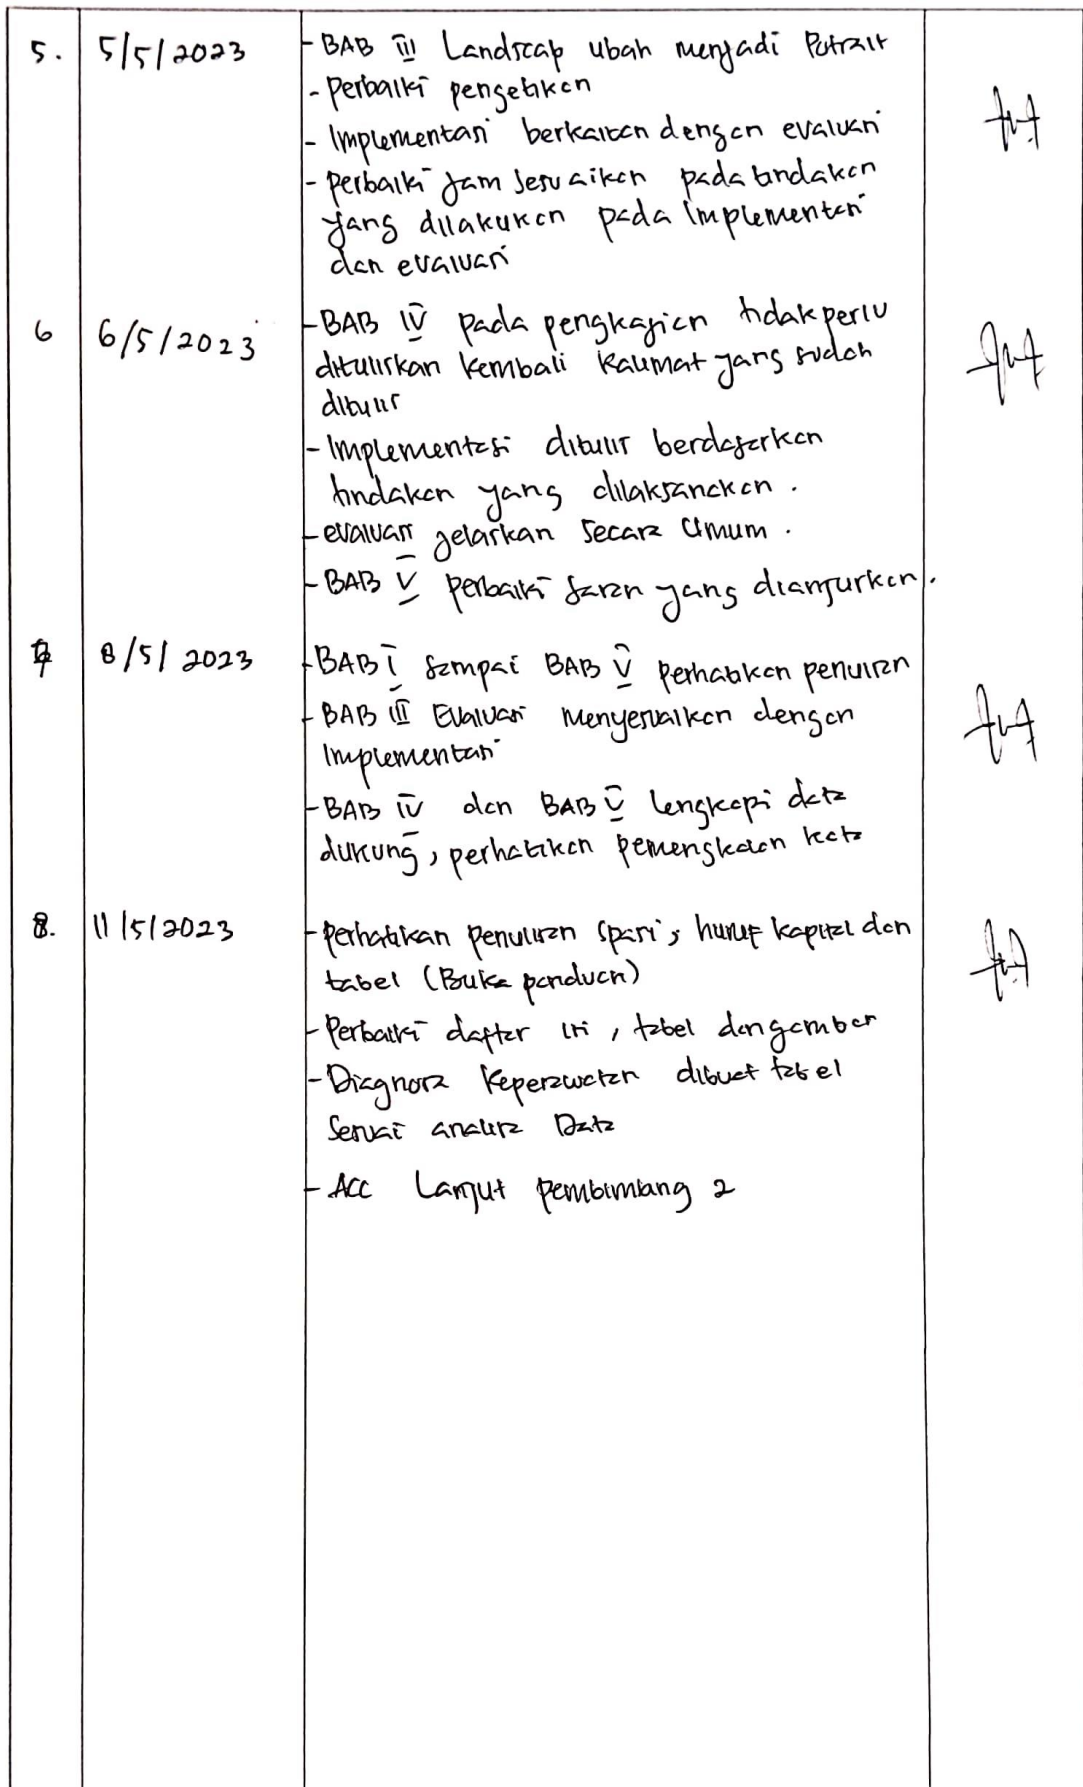 5. 5/5/2023 - BAB III Landscap ubah menjadi Potrait
- Perbaiki pengetikan
- Implementasi berkaitan dengan evaluasi
- perbaiki jam sesuaikan pada tindakan
yang dilakukan pada implementasi
dan evaluasi
6 6/5/2023 - BAB IV pada pengkajian tidak perlu
dituliskan kembali kalimat yang sudah
ditulis
- Implementasi ditulis berdasarkan
tindakan yang dilaksanakan.
- evaluasi jelaskan secara umum.
- BAB V perbaiki saran yang dianjurkan.
7 8/5/2023 - BAB I sampai BAB V perhatikan penulisan
- BAB III Evaluasi menyesuaikan dengan
Implementasi
- BAB IV dan BAB V lengkapi data
dukung, perhatikan pemengkalan kata
8. 11/5/2023 - Perhatikan penulisan spasi, huruf kapital dan
tabel (Buka panduan)
- Perbaiki daftar isi, tabel dan gambar
- Diagnosa Keperawatan dibuat tabel
Sesuai analisa Data
- ACC Lanjut pembimbing 2